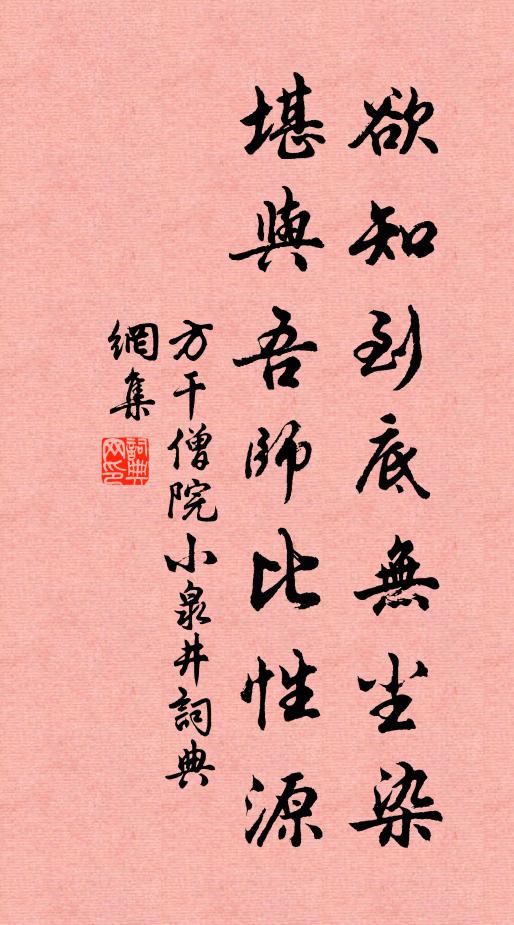 欲知到底無尘染
堪與吾師比性源
方干僧院小泉井詞典
網集
詞典
网印